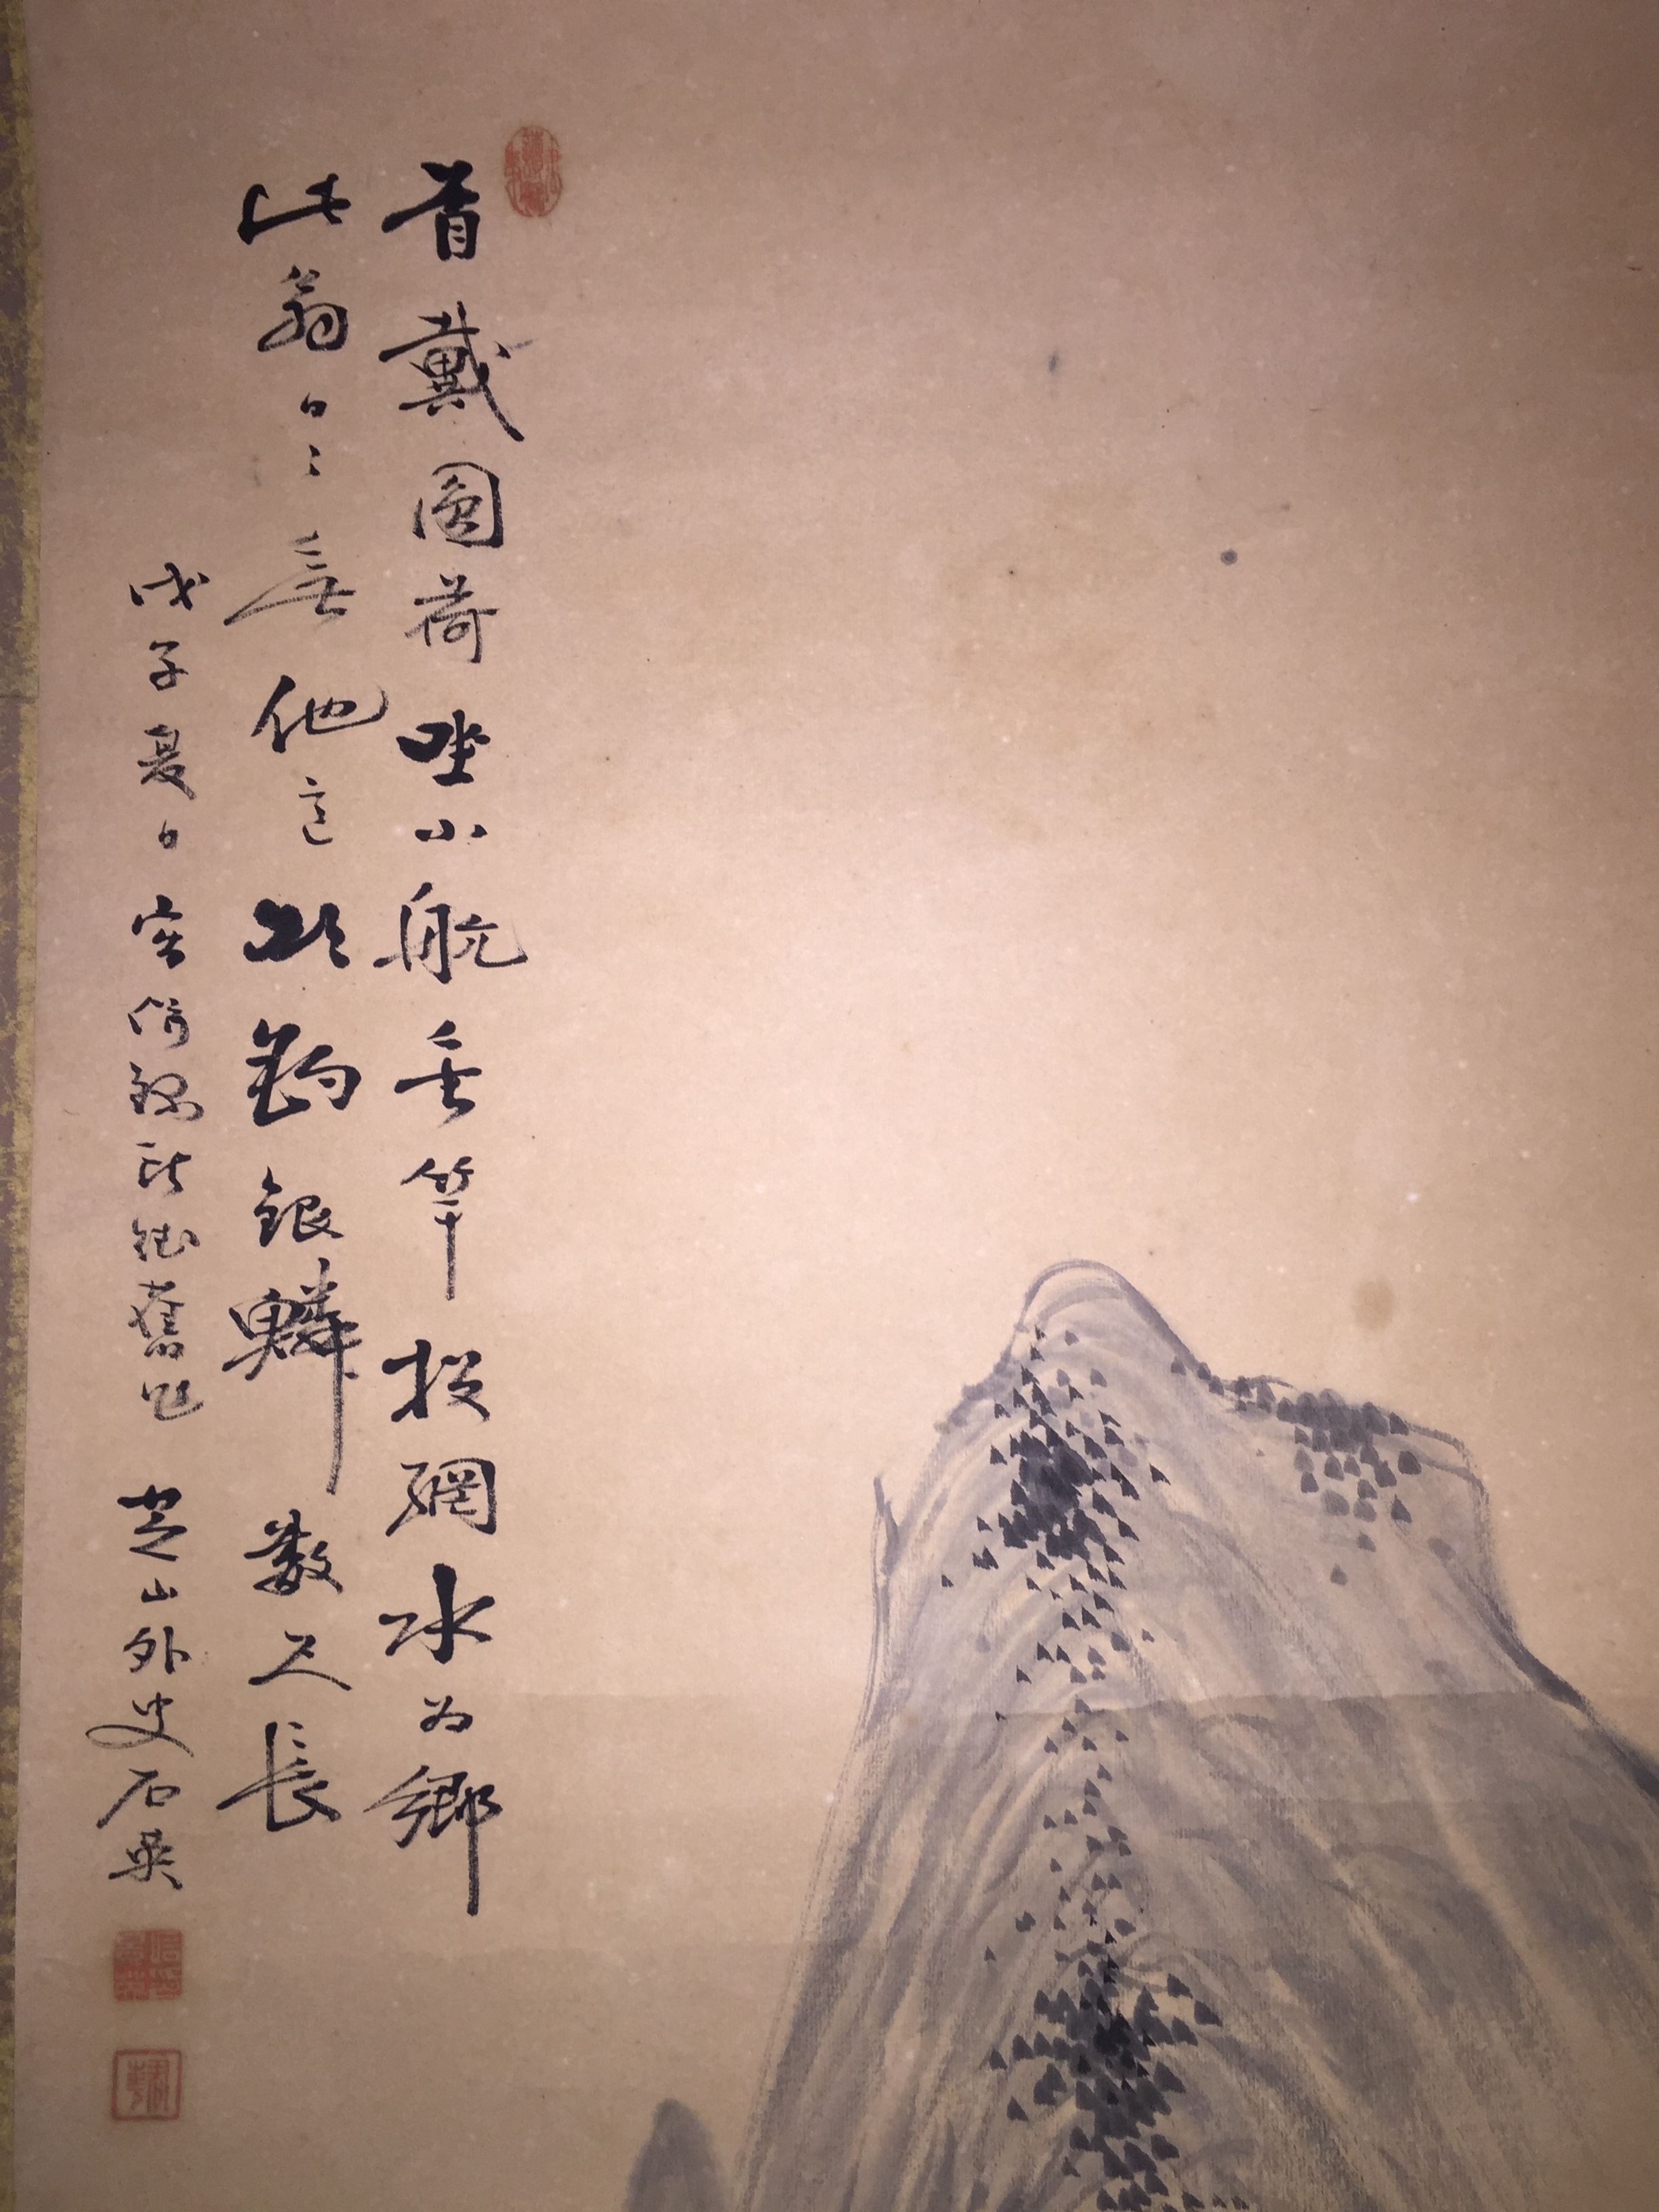 首戴圓荷坐小航垂竿投網水為鄉
此翁日〻無他意欲釣銀鱗數尺長
戊子夏日寫 舊 芝山外史石英